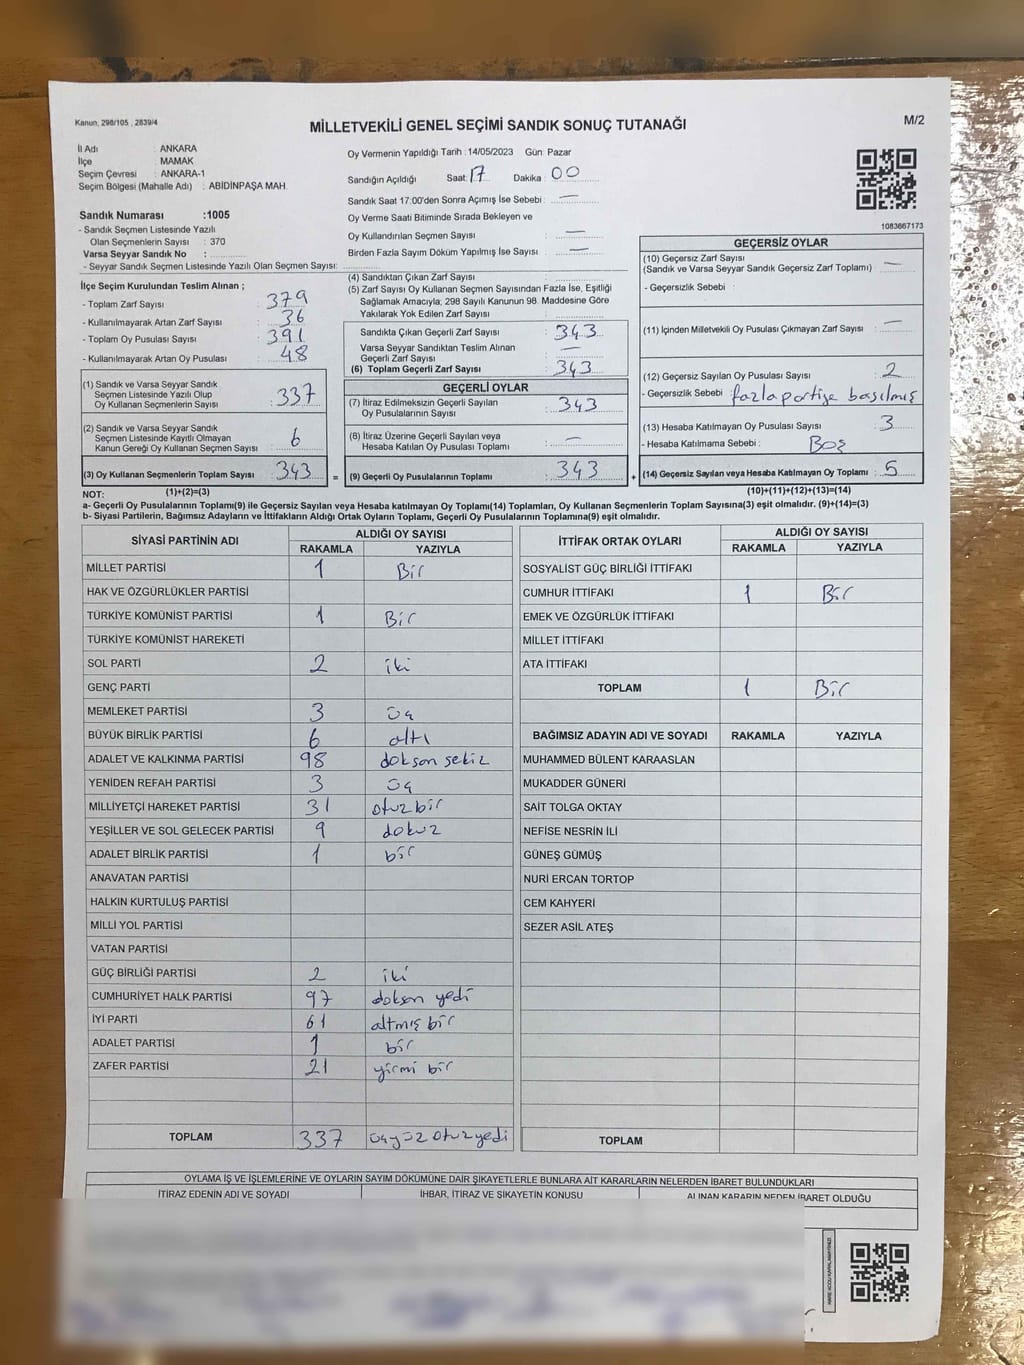 Kanun, 298/105 , 2839/4
MİLLETVEKİLİ GENEL SEÇİMİ SANDIK SONUÇ TUTANAĞI
M/2
İl Adı : ANKARA
İlçe : MAMAK
Seçim Çevresi : ANKARA-1
Seçim Bölgesi (Mahalle Adı) : ABİDİNPAŞA MAH.
Sandık Numarası :1005
- Sandık Seçmen Listesinde Yazılı
Olan Seçmenlerin Sayısı : 370
Varsa Seyyar Sandık No :
- Seyyar Sandık Seçmen Listesinde Yazılı Olan Seçmen Sayısı:
Oy Vermenin Yapıldığı Tarih : 14/05/2023 Gün: Pazar
Sandığın Açıldığı Saat: 17 Dakika : 00
Sandık Saat 17:00'den Sonra Açımış İse Sebebi : —
Oy Verme Saati Bitiminde Sırada Bekleyen ve
Oy Kullandırılan Seçmen Sayısı : —
Birden Fazla Sayım Döküm Yapılmış İse Sayısı : —
1083667173
İlçe Seçim Kurulundan Teslim Alınan ;
- Toplam Zarf Sayısı : 379
- Kullanılmayarak Artan Zarf Sayısı : 36
- Toplam Oy Pusulası Sayısı : 391
- Kullanılmayarak Artan Oy Pusulası : 48
(1) Sandık ve Varsa Seyyar Sandık
Seçmen Listesinde Yazılı Olup
Oy Kullanan Seçmenlerin Sayısı : 337
(2) Sandık ve Varsa Seyyar Sandık
Seçmen Listesinde Kayıtlı Olmayan
Kanun Gereği Oy Kullanan Seçmen Sayısı : 6
(3) Oy Kullanan Seçmenlerin Toplam Sayısı : 343 =
(4) Sandıktan Çıkan Zarf Sayısı :
(5) Zarf Sayısı Oy Kullanan Seçmen Sayısından Fazla İse, Eşitliği
Sağlamak Amacıyla; 298 Sayılı Kanunun 98. Maddesine Göre
Yakılarak Yok Edilen Zarf Sayısı :
Sandıkta Çıkan Geçerli Zarf Sayısı : 343
Varsa Seyyar Sandıktan Teslim Alınan
Geçerli Zarf Sayısı : —
(6) Toplam Geçerli Zarf Sayısı : 343
GEÇERLİ OYLAR
(7) İtiraz Edilmeksizin Geçerli Sayılan
Oy Pusulalarının Sayısı : 343
(8) İtiraz Üzerine Geçerli Sayılan veya
Hesaba Katılan Oy Pusulası Toplamı : —
(9) Geçerli Oy Pusulalarının Toplamı : 343 +
GEÇERSİZ OYLAR
(10) Geçersiz Zarf Sayısı
(Sandık ve Varsa Seyyar Sandık Geçersiz Zarf Toplamı) : —
- Geçersizlik Sebebi :
(11) İçinden Milletvekili Oy Pusulası Çıkmayan Zarf Sayısı : —
(12) Geçersiz Sayılan Oy Pusulası Sayısı : 2
- Geçersizlik Sebebi : fazla partiye basılmış
(13) Hesaba Katılmayan Oy Pusulası Sayısı : 3
- Hesaba Katılmama Sebebi : Boş
(14) Geçersiz Sayılan veya Hesaba Katılmayan Oy Toplamı : 5
NOT: (1)+(2)=(3) (10)+(11)+(12)+(13)=(14)
a- Geçerli Oy Pusulalarının Toplamı(9) ile Geçersiz Sayılan veya Hesaba katılmayan Oy Toplamı(14) Toplamları, Oy Kullanan Seçmenlerin Toplam Sayısına(3) eşit olmalıdır. (9)+(14)=(3)
b- Siyasi Partilerin, Bağımsız Adayların ve İttifakların Aldığı Ortak Oyların Toplamı, Geçerli Oy Pusulalarının Toplamına(9) eşit olmalıdır.
SİYASİ PARTİNİN ADI ALDIĞI OY SAYISI
RAKAMLA YAZIYLA
MİLLET PARTİSİ 1 Bir
HAK VE ÖZGÜRLÜKLER PARTİSİ
TÜRKİYE KOMÜNİST PARTİSİ 1 Bir
TÜRKİYE KOMÜNİST HAREKETİ
SOL PARTİ 2 iki
GENÇ PARTİ
MEMLEKET PARTİSİ 3 üç
BÜYÜK BİRLİK PARTİSİ 6 altı
ADALET VE KALKINMA PARTİSİ 98 doksan sekiz
YENİDEN REFAH PARTİSİ 3 üç
MİLLİYETÇİ HAREKET PARTİSİ 31 otuz bir
YEŞİLLER VE SOL GELECEK PARTİSİ 9 dokuz
ADALET BİRLİK PARTİSİ 1 bir
ANAVATAN PARTİSİ
HALKIN KURTULUŞ PARTİSİ
MİLLİ YOL PARTİSİ
VATAN PARTİSİ
GÜÇ BİRLİĞİ PARTİSİ 2 iki
CUMHURİYET HALK PARTİSİ 97 doksan yedi
İYİ PARTİ 61 altmış bir
ADALET PARTİSİ 1 bir
ZAFER PARTİSİ 21 yirmi bir
TOPLAM 337 üçyüz otuzyedi
İTTİFAK ORTAK OYLARI ALDIĞI OY SAYISI
RAKAMLA YAZIYLA
SOSYALİST GÜÇ BİRLİĞİ İTTİFAKI
CUMHUR İTTİFAKI 1 Bir
EMEK VE ÖZGÜRLÜK İTTİFAKI
MİLLET İTTİFAKI
ATA İTTİFAKI
TOPLAM 1 Bir
BAĞIMSIZ ADAYIN ADI VE SOYADI RAKAMLA YAZIYLA
MUHAMMED BÜLENT KARAASLAN
MUKADDER GÜNERİ
SAİT TOLGA OKTAY
NEFİSE NESRİN İLİ
GÜNEŞ GÜMÜŞ
NURİ ERCAN TORTOP
CEM KAHYERİ
SEZER ASİL ATEŞ
TOPLAM
OYLAMA İŞ VE İŞLEMLERİNE VE OYLARIN SAYIM DÖKÜMÜNE DAİR ŞİKAYETLERLE BUNLARA AİT KARARLARIN NELERDEN İBARET BULUNDUKLARI
İTİRAZ EDENİN ADI VE SOYADI İHBAR, İTİRAZ VE ŞİKAYETİN KONUSU ALINAN KARARIN NEDEN İBARET OLDUĞU